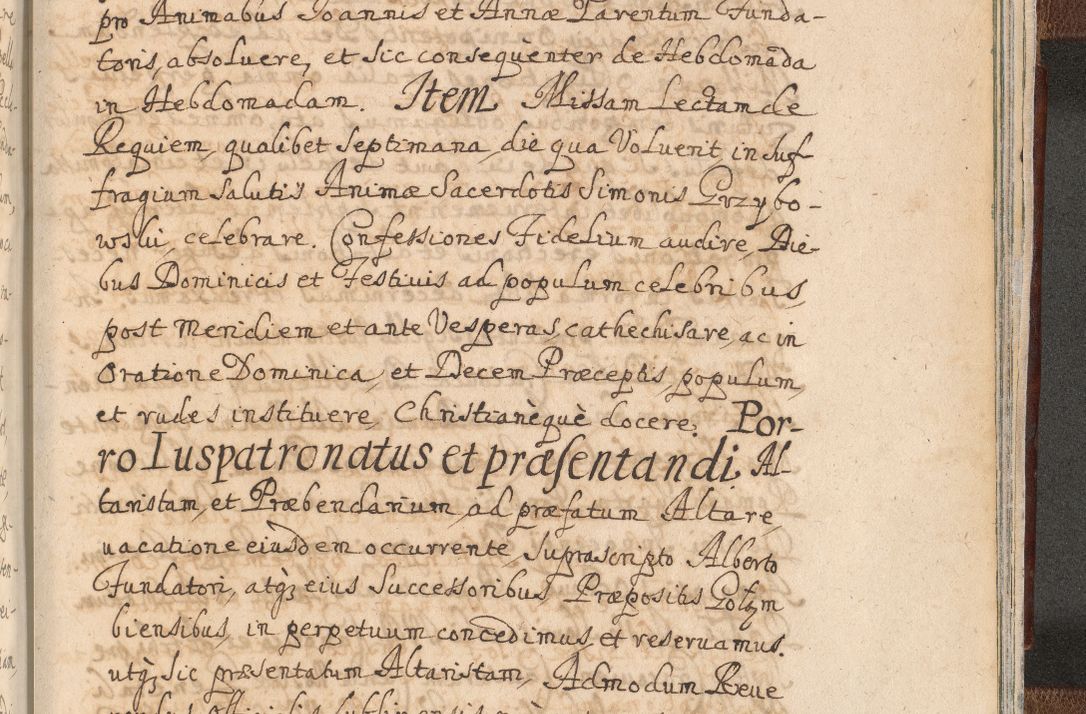 pro Animabus Ioannis et Annæ Parentum Funda-
toris, absoluere, et sic consequenter de Hebdomada
in Hebdomadam. Item Missam Lectam de
Requiem, qualibet septimana, die qua Voluerit, in suf-
fragium salutis Animæ Sacerdotis Simonis Grzybo-
wski, celebrare. Confessiones Fidelium audire, Die-
bus Dominicis et Festiuis ad populum celebribus,
post meridiem et ante Vesperas, cathechisare, ac in
Oratione Dominica, et Decem Præceptis, populum,
et rudes instituere, Christianèquè docere. Por-
ro Iuspatronatus et præsentandi Al-
taristam, et Præbendarium, ad præfatum Altare,
uacatione eiusdem occurrente, suprascripto Alberto
Fundatori, atq̀ꝫ eius Successoribus, Præpositis Gołym
biensibus, in perpetuum concedimus, et reseruamus.
utq̀ꝫ sic præsentatum Altaristam, Admodum Reue